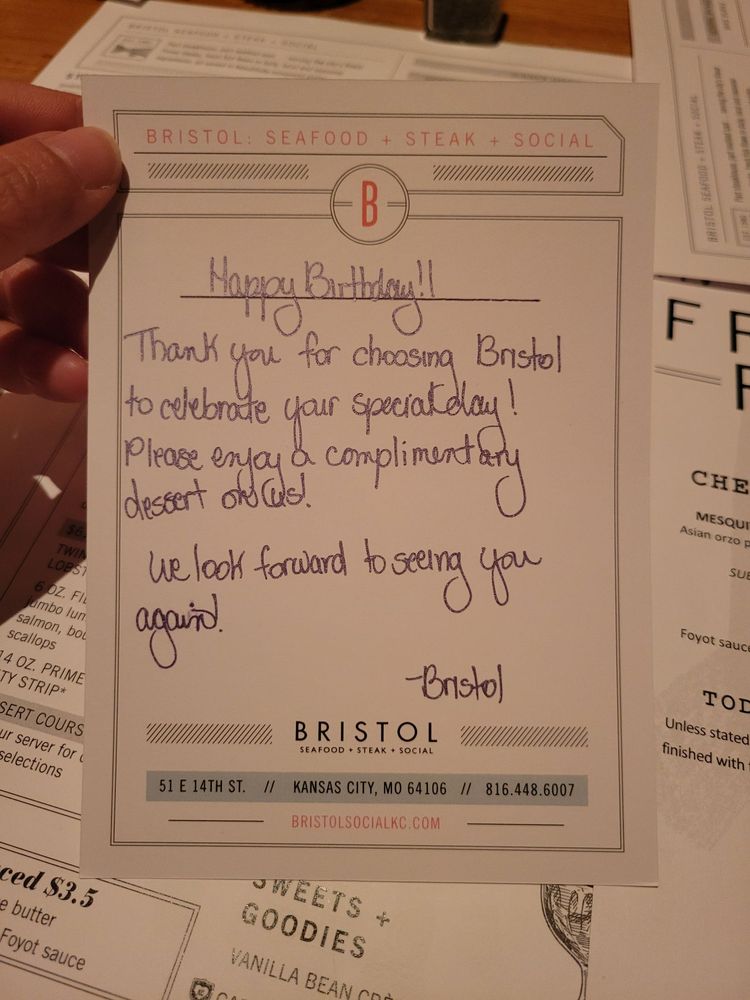 BRISTOL: SEAFOOD + STEAK + SOCIAL
B
Happy Birthday!!
Thank you for choosing Bristol
to celebrate your special day!
Please enjoy a complimentary
dessert on us!
We look forward to seeing you
again!
-Bristol
BRISTOL
SEAFOOD + STEAK + SOCIAL
51 E 14TH ST. // KANSAS CITY, MO 64106 // 816.448.6007
BRISTOLSOCIALKC.COM
BRISTOL SEAFOOD + STEAK + SOCIAL
BRISTOL SEAFOOD + STEAK + SOCIAL
F
CHE
MESQUI
Asian orzo p
SU
Foyot sauce
TOD
Unless stated
finished with
TWIN
LOBST
6 OZ. FIL
jumbo lum
salmon, bou
scallops
14 OZ. PRIME
TY STRIP*
SERT COURS
ur server for
selections
ced $3.5
e butter
Foyot sauce
SWEETS +
GOODIES
VANILLA BEAN CRÈ